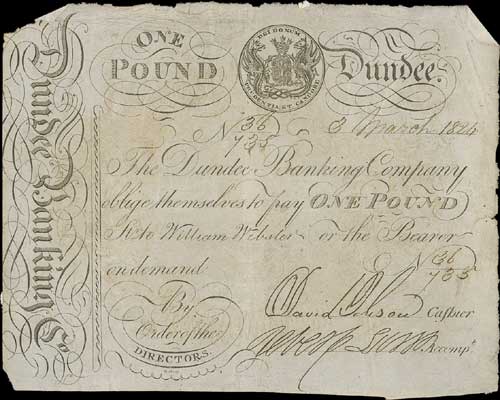 Dundee Banking Co.
ONE
POUND
DEI DONUM
PRUDENTIA ET CANDORE
Dundee.
No 36/735
3 March 1824
The Dundee Banking Company
oblige themselves to pay ONE POUND
Ste to William Webster or the Bearer
on demand
No 36/735
By
Order of the
DIRECTORS.
David Cashier
Accompt.